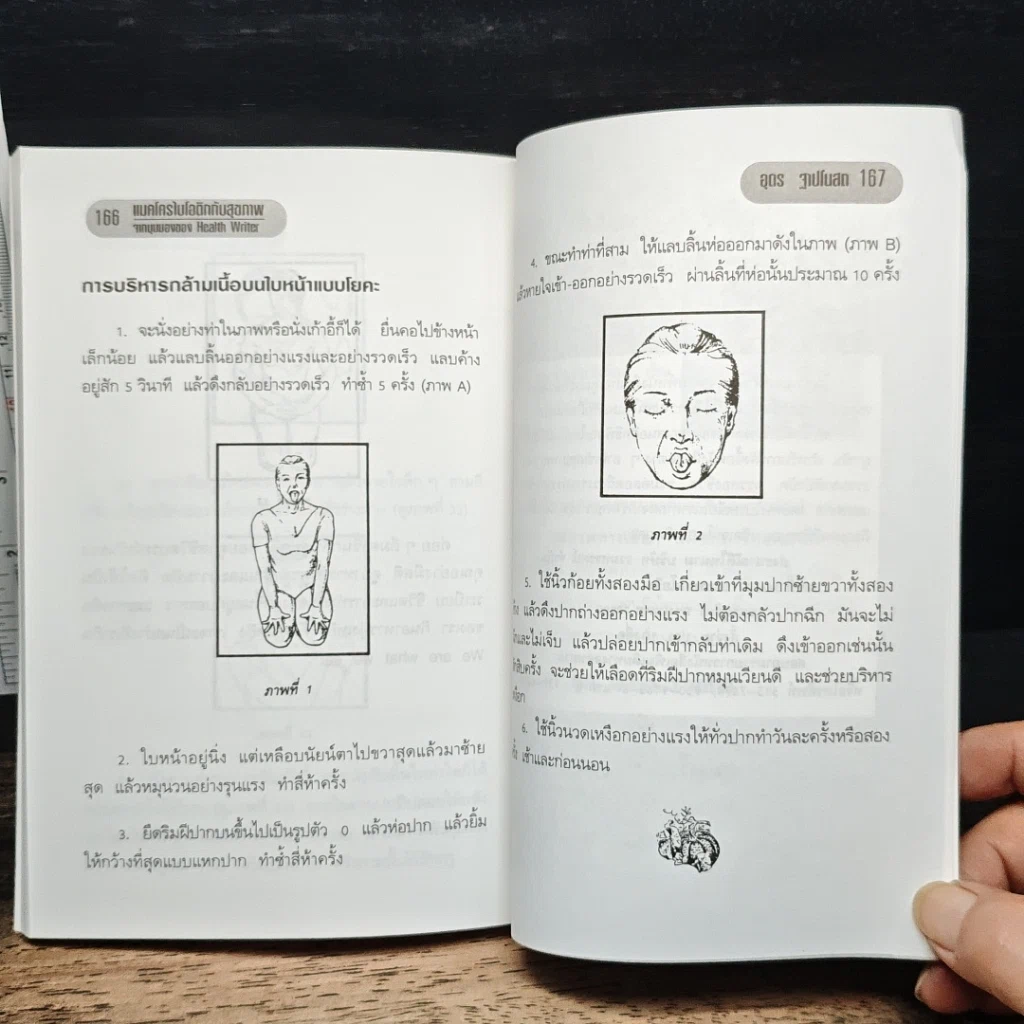 166 แมคโครไบโอติกกับสุขภาพ
จากมุมมองของ Health Writer
การบริหารกล้ามเนื้อบนใบหน้าแบบโยคะ
1. จะนั่งอย่างท่าในภาพหรือนั่งเก้าอี้ก็ได้ ยื่นคอไปข้างหน้า
เล็กน้อย แล้วแลบลิ้นออกอย่างแรงและอย่างรวดเร็ว แลบค้าง
อยู่สัก 5 วินาที แล้วดึงกลับอย่างรวดเร็ว ทำซ้ำ 5 ครั้ง (ภาพ A)
ภาพที่ 1
2. ใบหน้าอยู่นิ่ง แต่เหลือบนัยน์ตาไปขวาสุดแล้วมาซ้าย
สุด แล้วหมุนวนอย่างรุนแรง ทำสี่ห้าครั้ง
3. ยืดริมฝีปากบนขึ้นไปเป็นรูปตัว O แล้วห่อปาก แล้วยิ้ม
ให้กว้างที่สุดแบบแหกปาก ทำซ้ำสี่ห้าครั้ง
อุดร ฐาปโนสถ 167
4. ขณะทำท่าที่สาม ให้แลบลิ้นห่อออกมาดังในภาพ (ภาพ B)
แล้วหายใจเข้า-ออกอย่างรวดเร็ว ผ่านลิ้นที่ห่อนั้นประมาณ 10 ครั้ง
ภาพที่ 2
5. ใช้นิ้วก้อยทั้งสองมือ เกี่ยวเข้าที่มุมปากซ้ายขวาทั้งสอง
แล้วดึงปากถ่างออกอย่างแรง ไม่ต้องกลัวปากฉีก มันจะไม่
และไม่เจ็บ แล้วปล่อยปากเข้ากลับท่าเดิม ดึงเข้าออกเช่นนั้น
จะช่วยให้เลือดที่ริมฝีปากหมุนเวียนดี และช่วยบริหาร
6. ใช้นิ้วนวดเหงือกอย่างแรงให้ทั่วปากทำวันละครั้งหรือสอง
เช้าและก่อนนอน